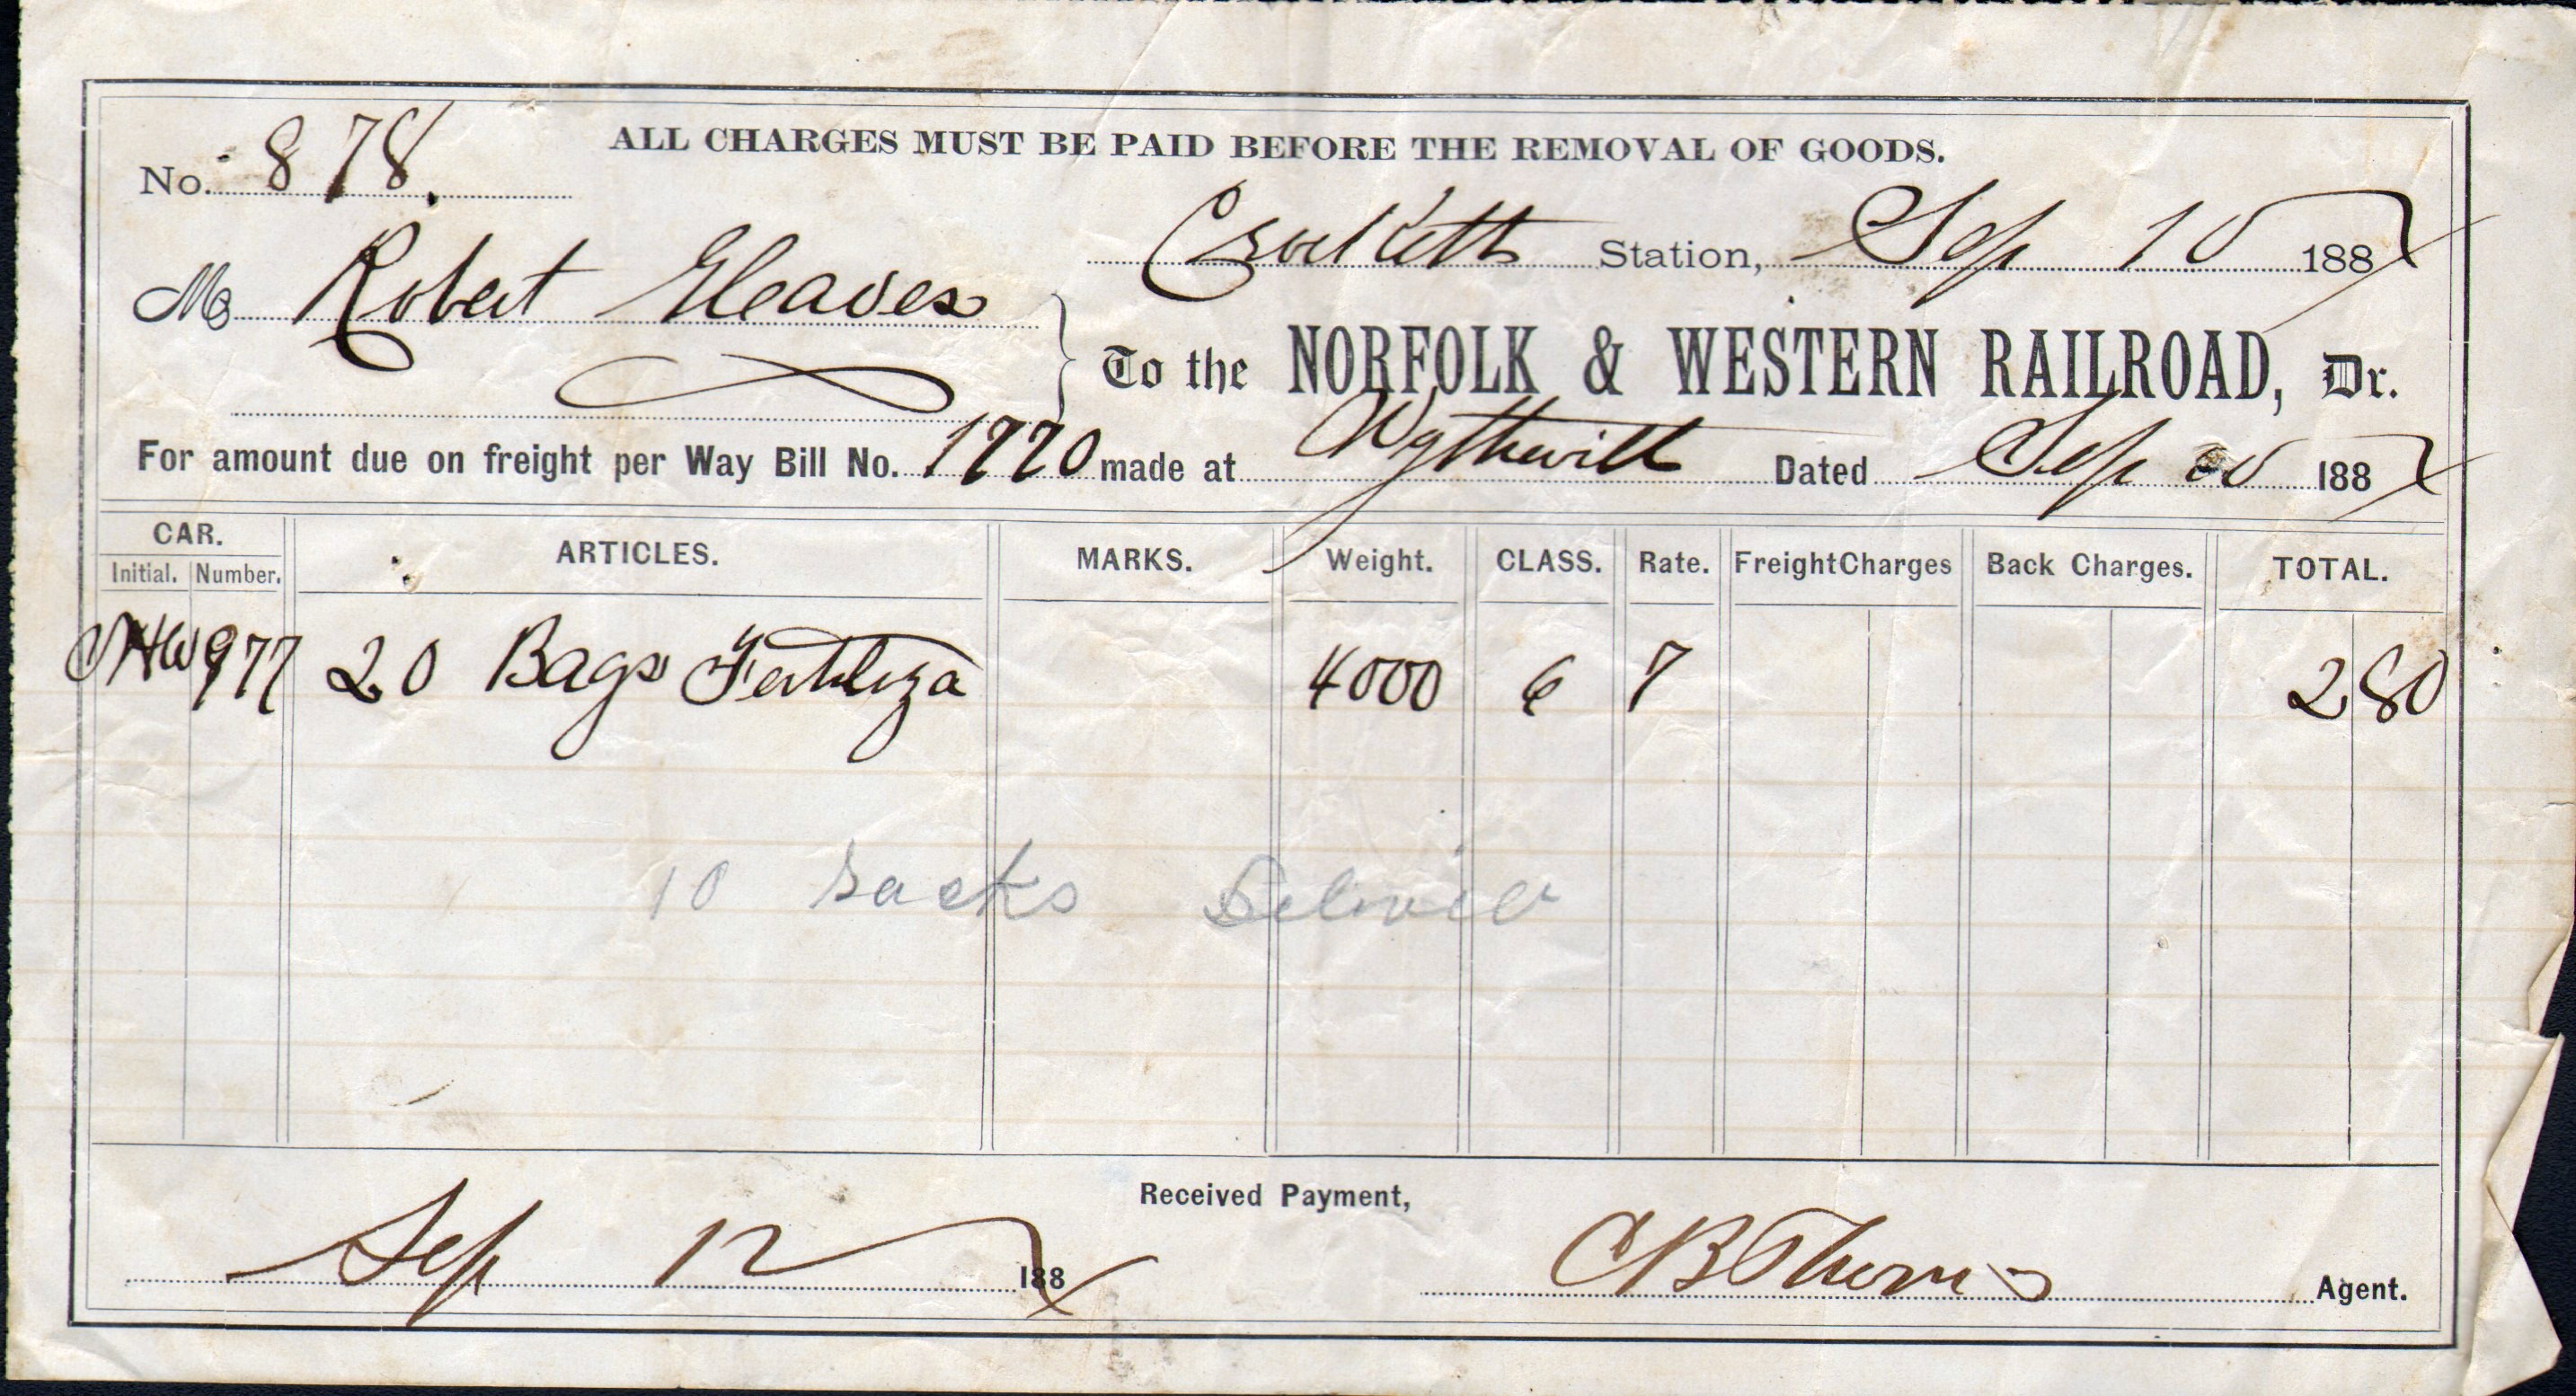 ALL CHARGES MUST BE PAID BEFORE THE REMOVAL OF GOODS.
No. 878.
Crockett Station, Sep 10 1887
M Robert Gleaves
To the NORFOLK & WESTERN RAILROAD, Dr.
For amount due on freight per Way Bill No. 1770 made at Wytheville Dated Sep 10 1887
CAR. ARTICLES. MARKS. Weight. CLASS. Rate. Freight Charges Back Charges. TOTAL.
Initial. Number.
977 20 Bags Fertilizer 4000 6 7 2 80
10 sacks
Received Payment,
Sep 12 1887 C B Thomas Agent.